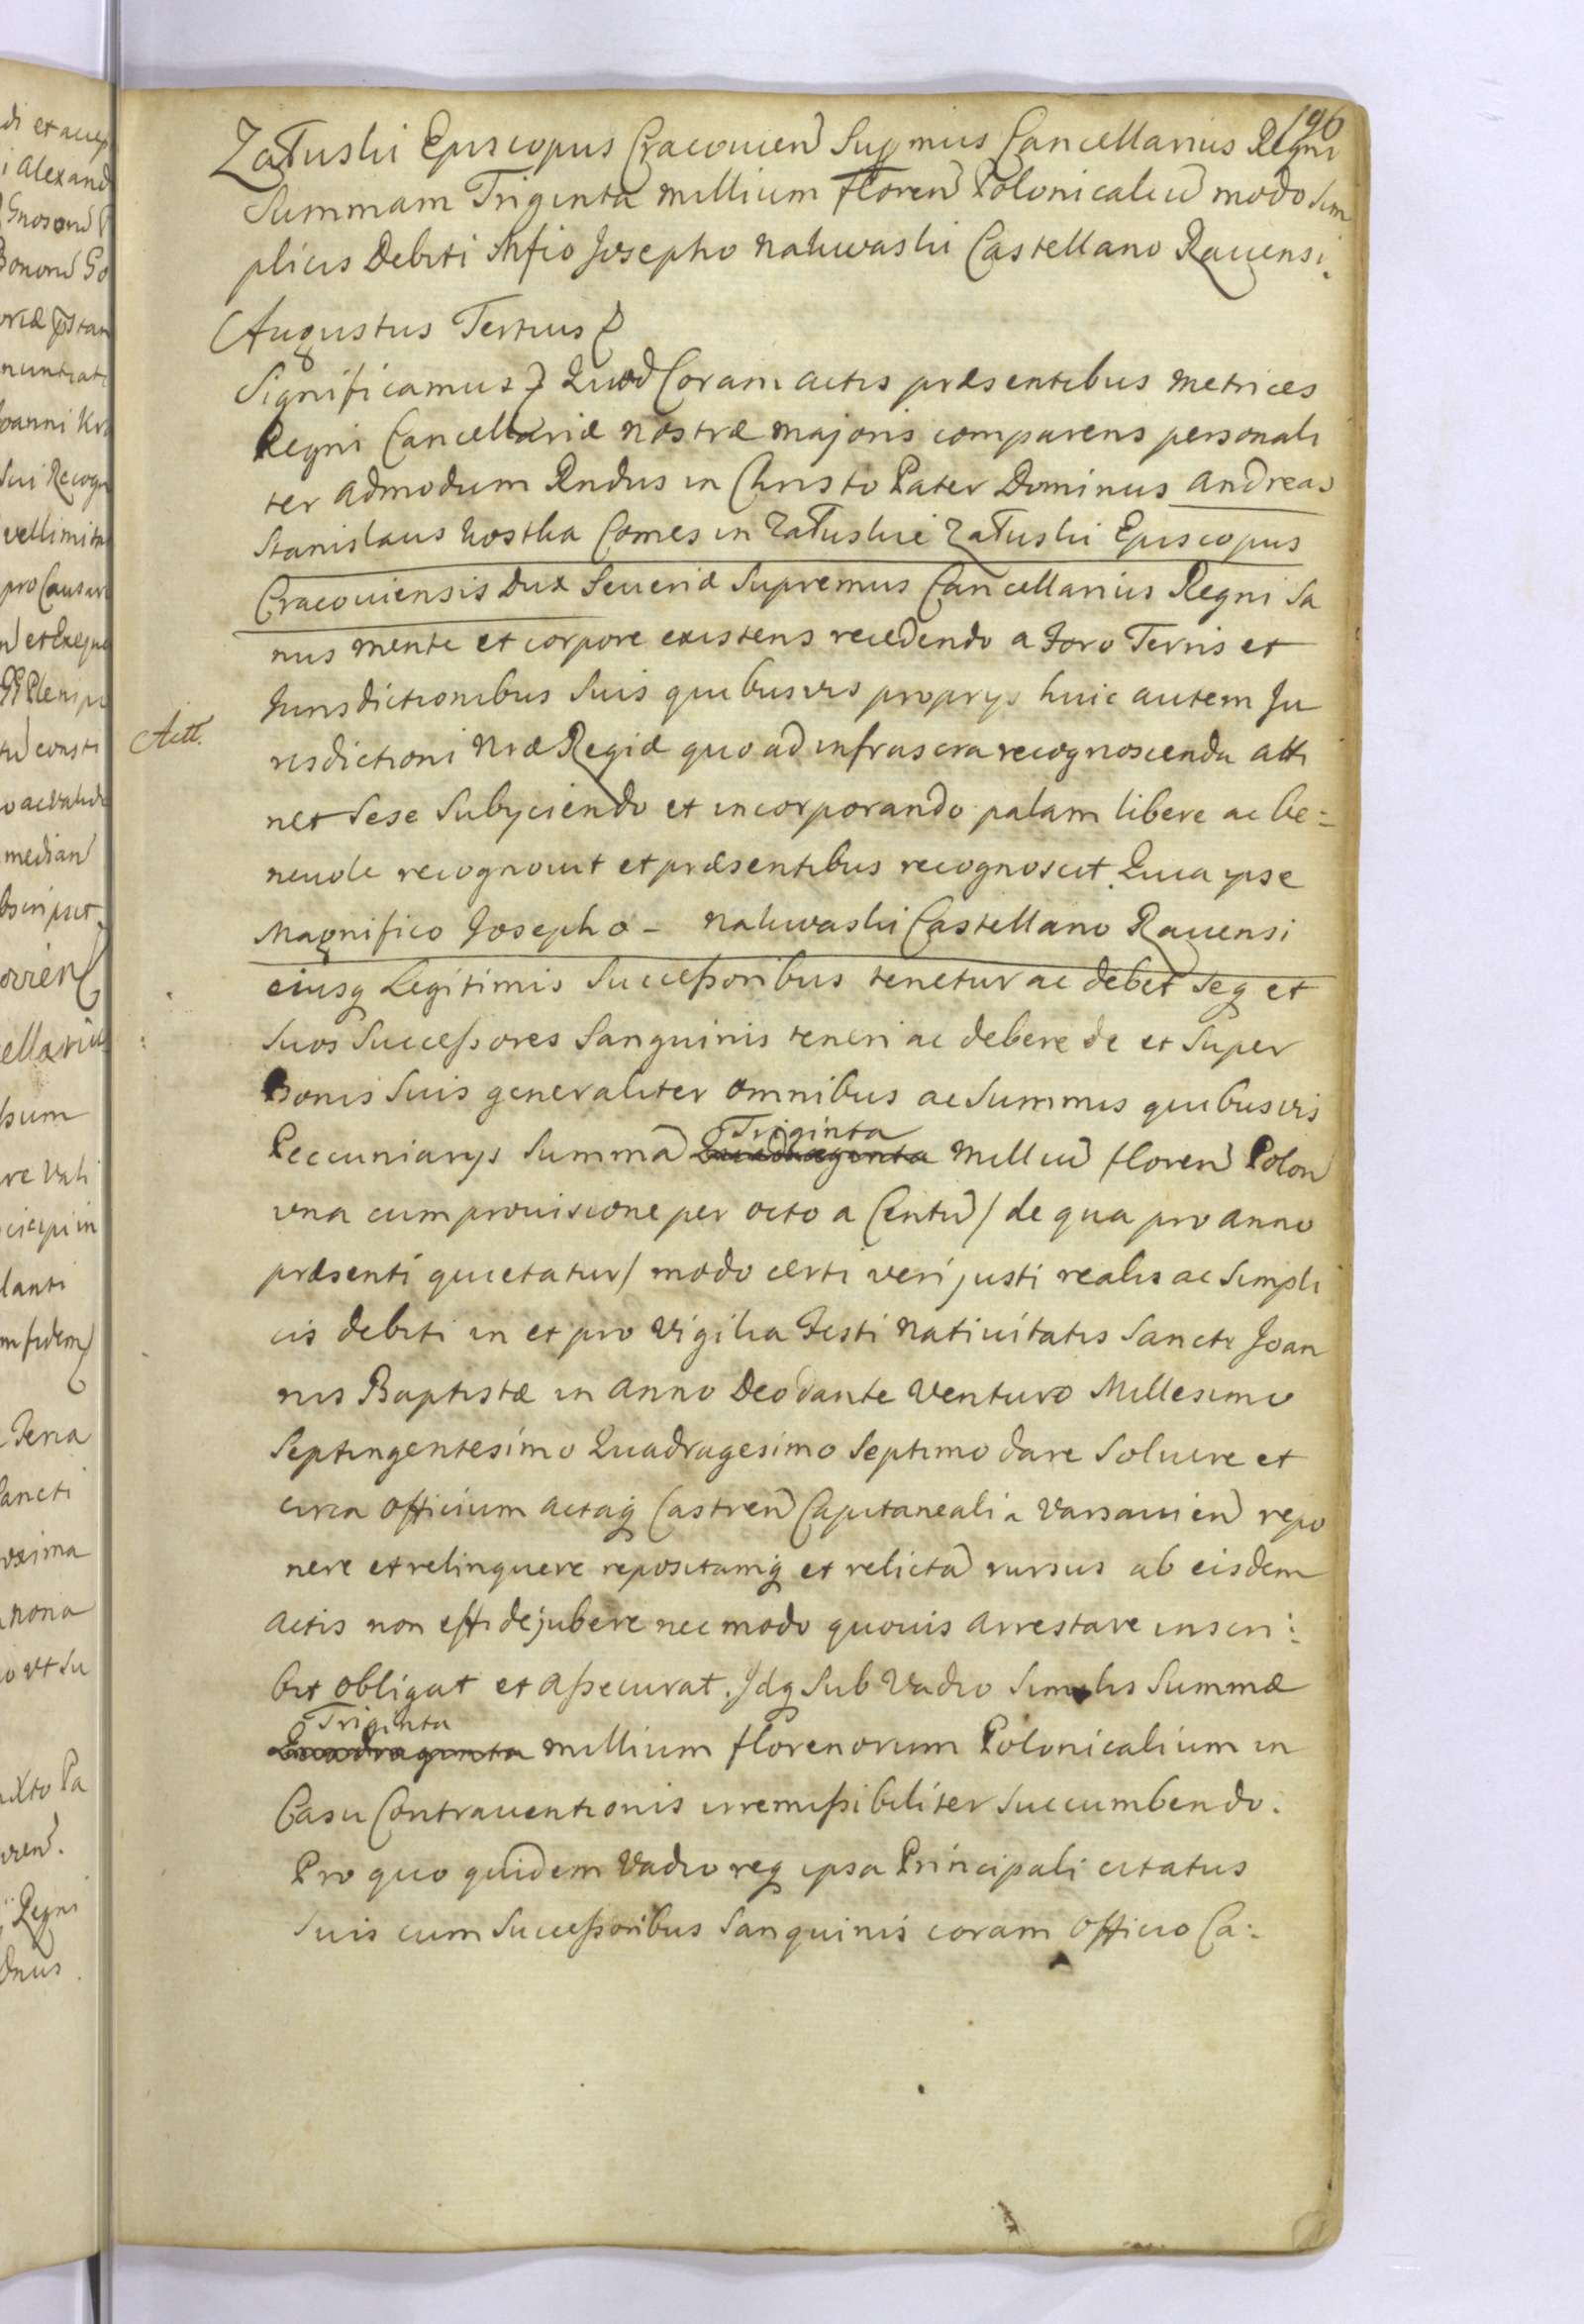 196
Załuski Episcopus Cracouien Supmus Cancellarius Regni
Summam Triginta millium floren Polonicaliu modo Sim
plicis Debiti Mfico Josepho Nakwaski Castellano Rauensi.
Augustus Tertius
Significamus Quod Coram actis præsentibus Metrices
Regni Cancellariæ Nostræ majoris comparens personali
ter Admodum Rndus in Christo Pater Dominus Andreas
Stanislaus Kostka Comes in Załuskie Załuski Episcopus
Cracouiensis Dux Seueriæ Supremus Cancellarius Regni Sa
nus mente et corpore existens recedendo a Foro Terris et
Jurisdictionibus Suis quibusvis proprys huic autem Ju
Actt.
risdictioni Nræ Regiæ quo ad infrascra recognoscenda atti
net Sese Subyciendo et incorporando palam libere ac be=
neuole recognouit et præsentibus recognoscit. Quia ipse
Magnifico Josepho - Nakwaski Castellano Rauensi
eiusq Legitimis Successoribus tenetur ac debet Seq et
Suos Successores Sanguinis teneri ac debere de et Super
Bonis Suis generaliter omnibus ac Summis quibusvis
Triginta
Peccuniarys Summa Quadraginta Milliu floren Polon
vna cum prouisione per octo a Centu / de qua pro anno
præsenti quietatur / modo certi veri justi realis ac Simpli
cis debiti in et pro Vigilia Festi Natiuitatis Sancti Joan
nis Baptistæ in Anno Deo dante Venturo Millesimo
Septingentesimo Quadragesimo Septimo dare Soluere et
circa Officium actaq Castren Capitanealia Varsauien repo
nere et relinquere repositamq et relicta rursus ab eisdem
actis non effidejubere nec modo quouis arrestare inscri:
bit obligat et assecurat. Idq Sub Vadio Similis Summæ
Triginta
Quadraginta millium florenorum Polonicalium in
Casu Contrauentionis irremissibiliter Succumbendo.
Pro quo quidem Vadio req ipsa Principali citatus
Suis cum Successoribus Sanguinis coram Officio Ca: